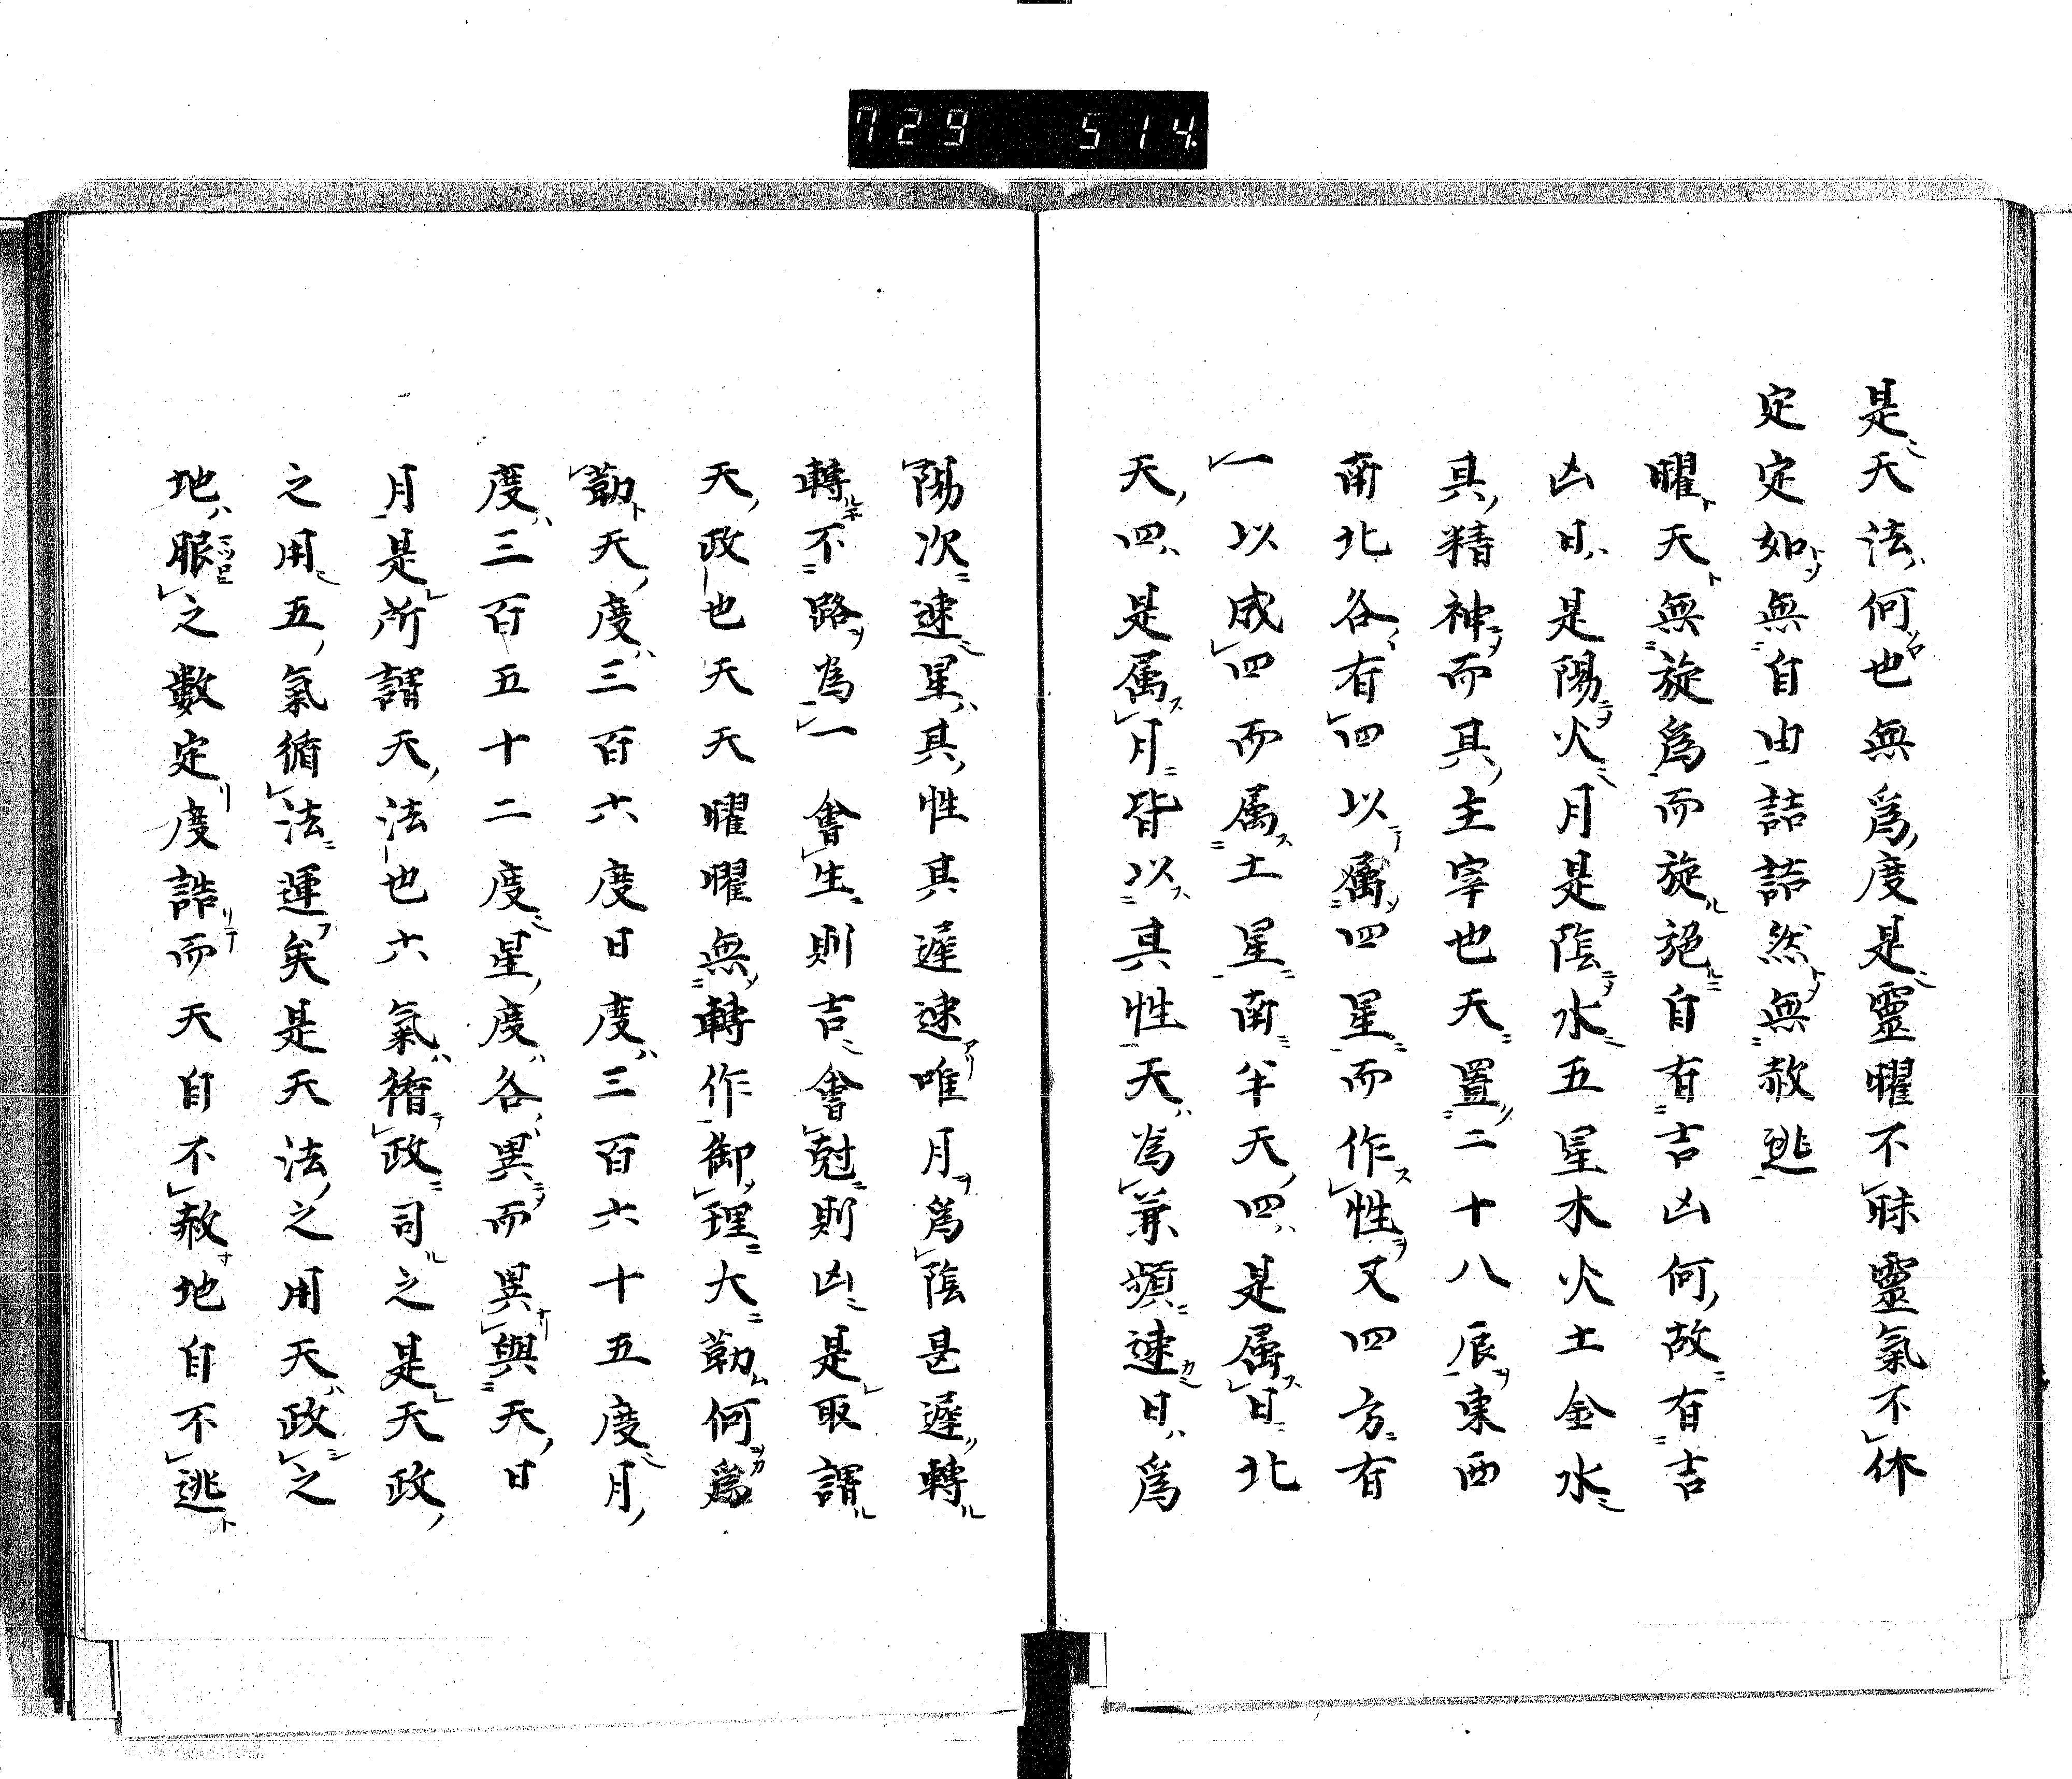 729 514
是天法何也無爲度是靈曜不昧靈氣不休
定定如無自由詰詰然無赦逃
曜天無旋爲而旋施自有吉凶何故有吉
凶日是陽火月是陰水五星木火土金水
具精神而其主宰也天置二十八辰東西
南北各有四以屬四星而作性又四方有
一以成四而属土星南半天四是属日北
天四是属月皆以其性天為兼頻速日爲
陽次速星其性其遲速唯月爲陰甚遲轉
轉不路為一會生則吉會尅則凶是取謂
天政也天天曜曜無轉作御理大勒何爲
勒天度三百六度日度三百六十五度月
度三百五十二度星度各異而異與天日
月是所謂天法也六氣循政司之是天政
之用五氣循法運矣是天法之用天政之
地服之數定度誥而天自不赦地自不逃